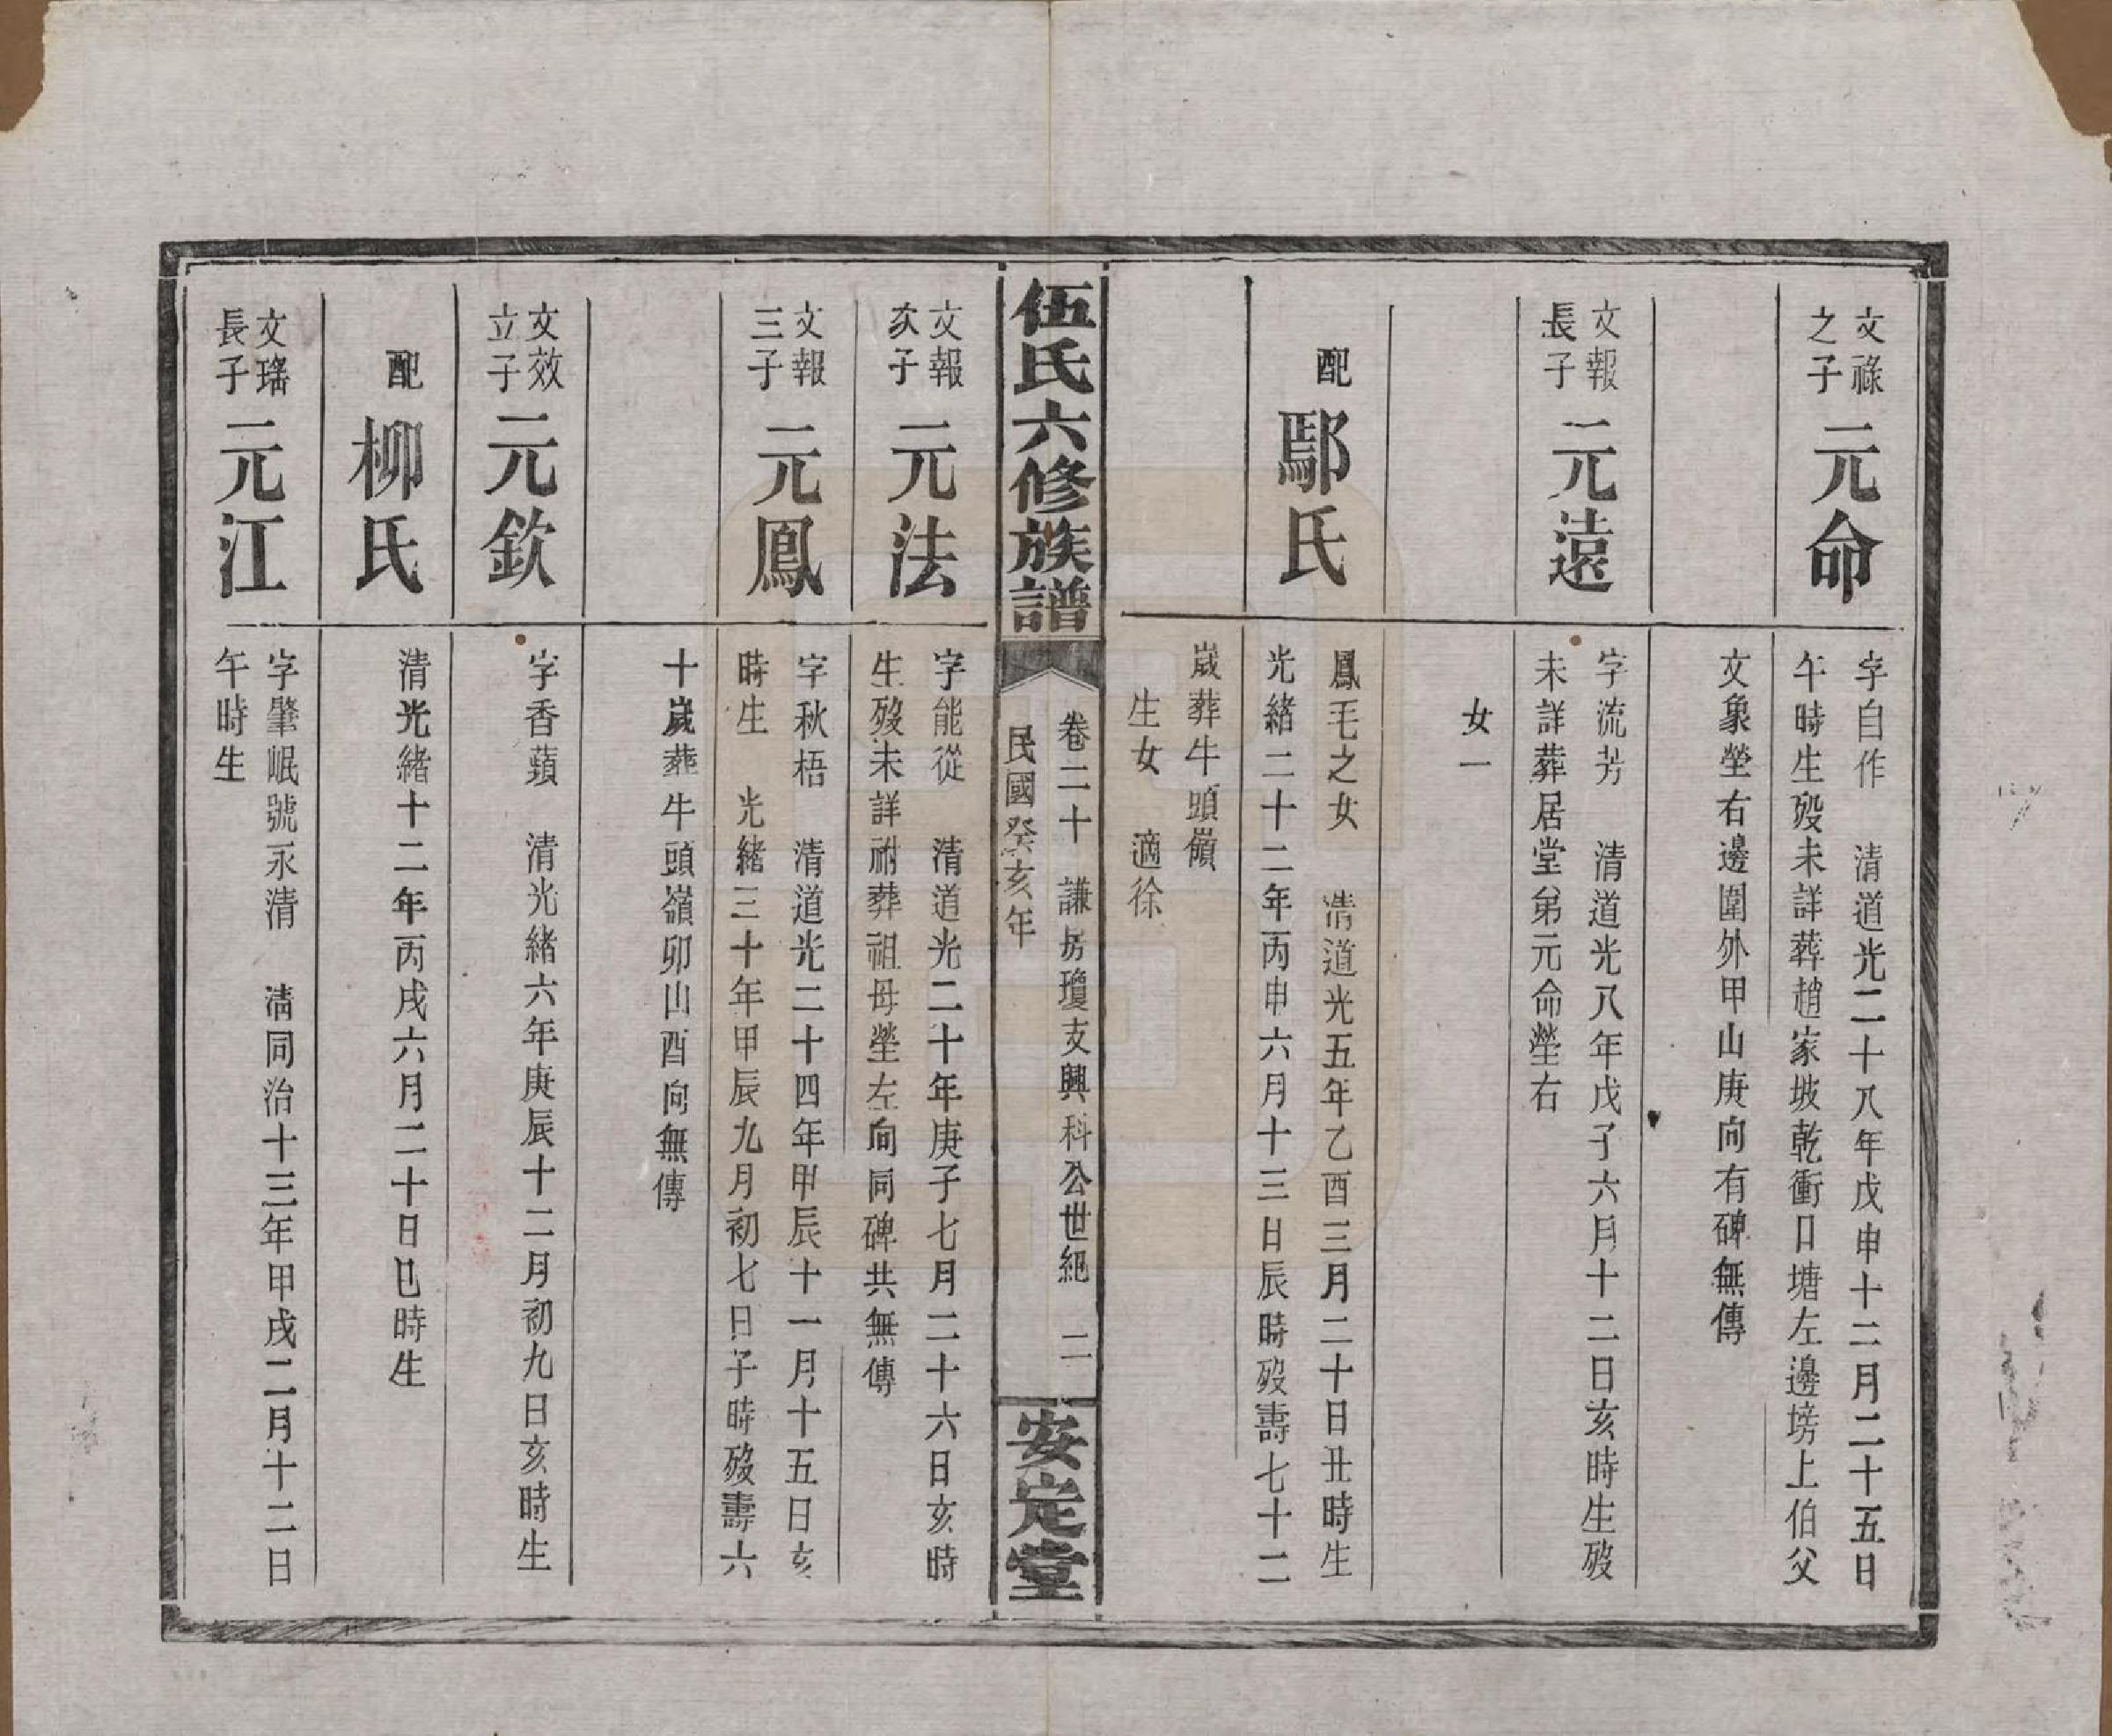 文祿之子
元命
字自作　清道光二十八年戊申十二月二十五日
午時生歿未詳葬趙家坡乾衝口塘左邊塝上伯父
文象塋右邊圍外甲山庚向有碑無傳
文報長子
元遠
字流芳　清道光八年戊子六月十二日亥時生歿
未詳葬居堂弟元命塋右
女一
配
鄢氏
鳳毛之女　清道光五年乙酉三月二十日丑時生
光緒二十二年丙申六月十三日辰時歿壽七十二
歲葬牛頭嶺
生女　適徐
伍氏六修族譜
卷二十　謙房瓊支興科公世絕　二
民國癸亥年
安定堂
文報次子
元法
字能從　清道光二十年庚子七月二十六日亥時
生歿未詳祔葬祖母塋左向同碑共無傳
文報三子
元鳳
字秋梧　清道光二十四年甲辰十一月十五日亥
時生　光緒三十年甲辰九月初七日子時歿壽六
十歲葬牛頭嶺卯山酉向無傳
文效立子
元欽
字香蘋　清光緒六年庚辰十二月初九日亥時生
配
柳氏
清光緒十二年丙戌六月二十日巳時生
文璠長子
元江
字肇岷號永清　清同治十三年甲戌二月十二日
午時生